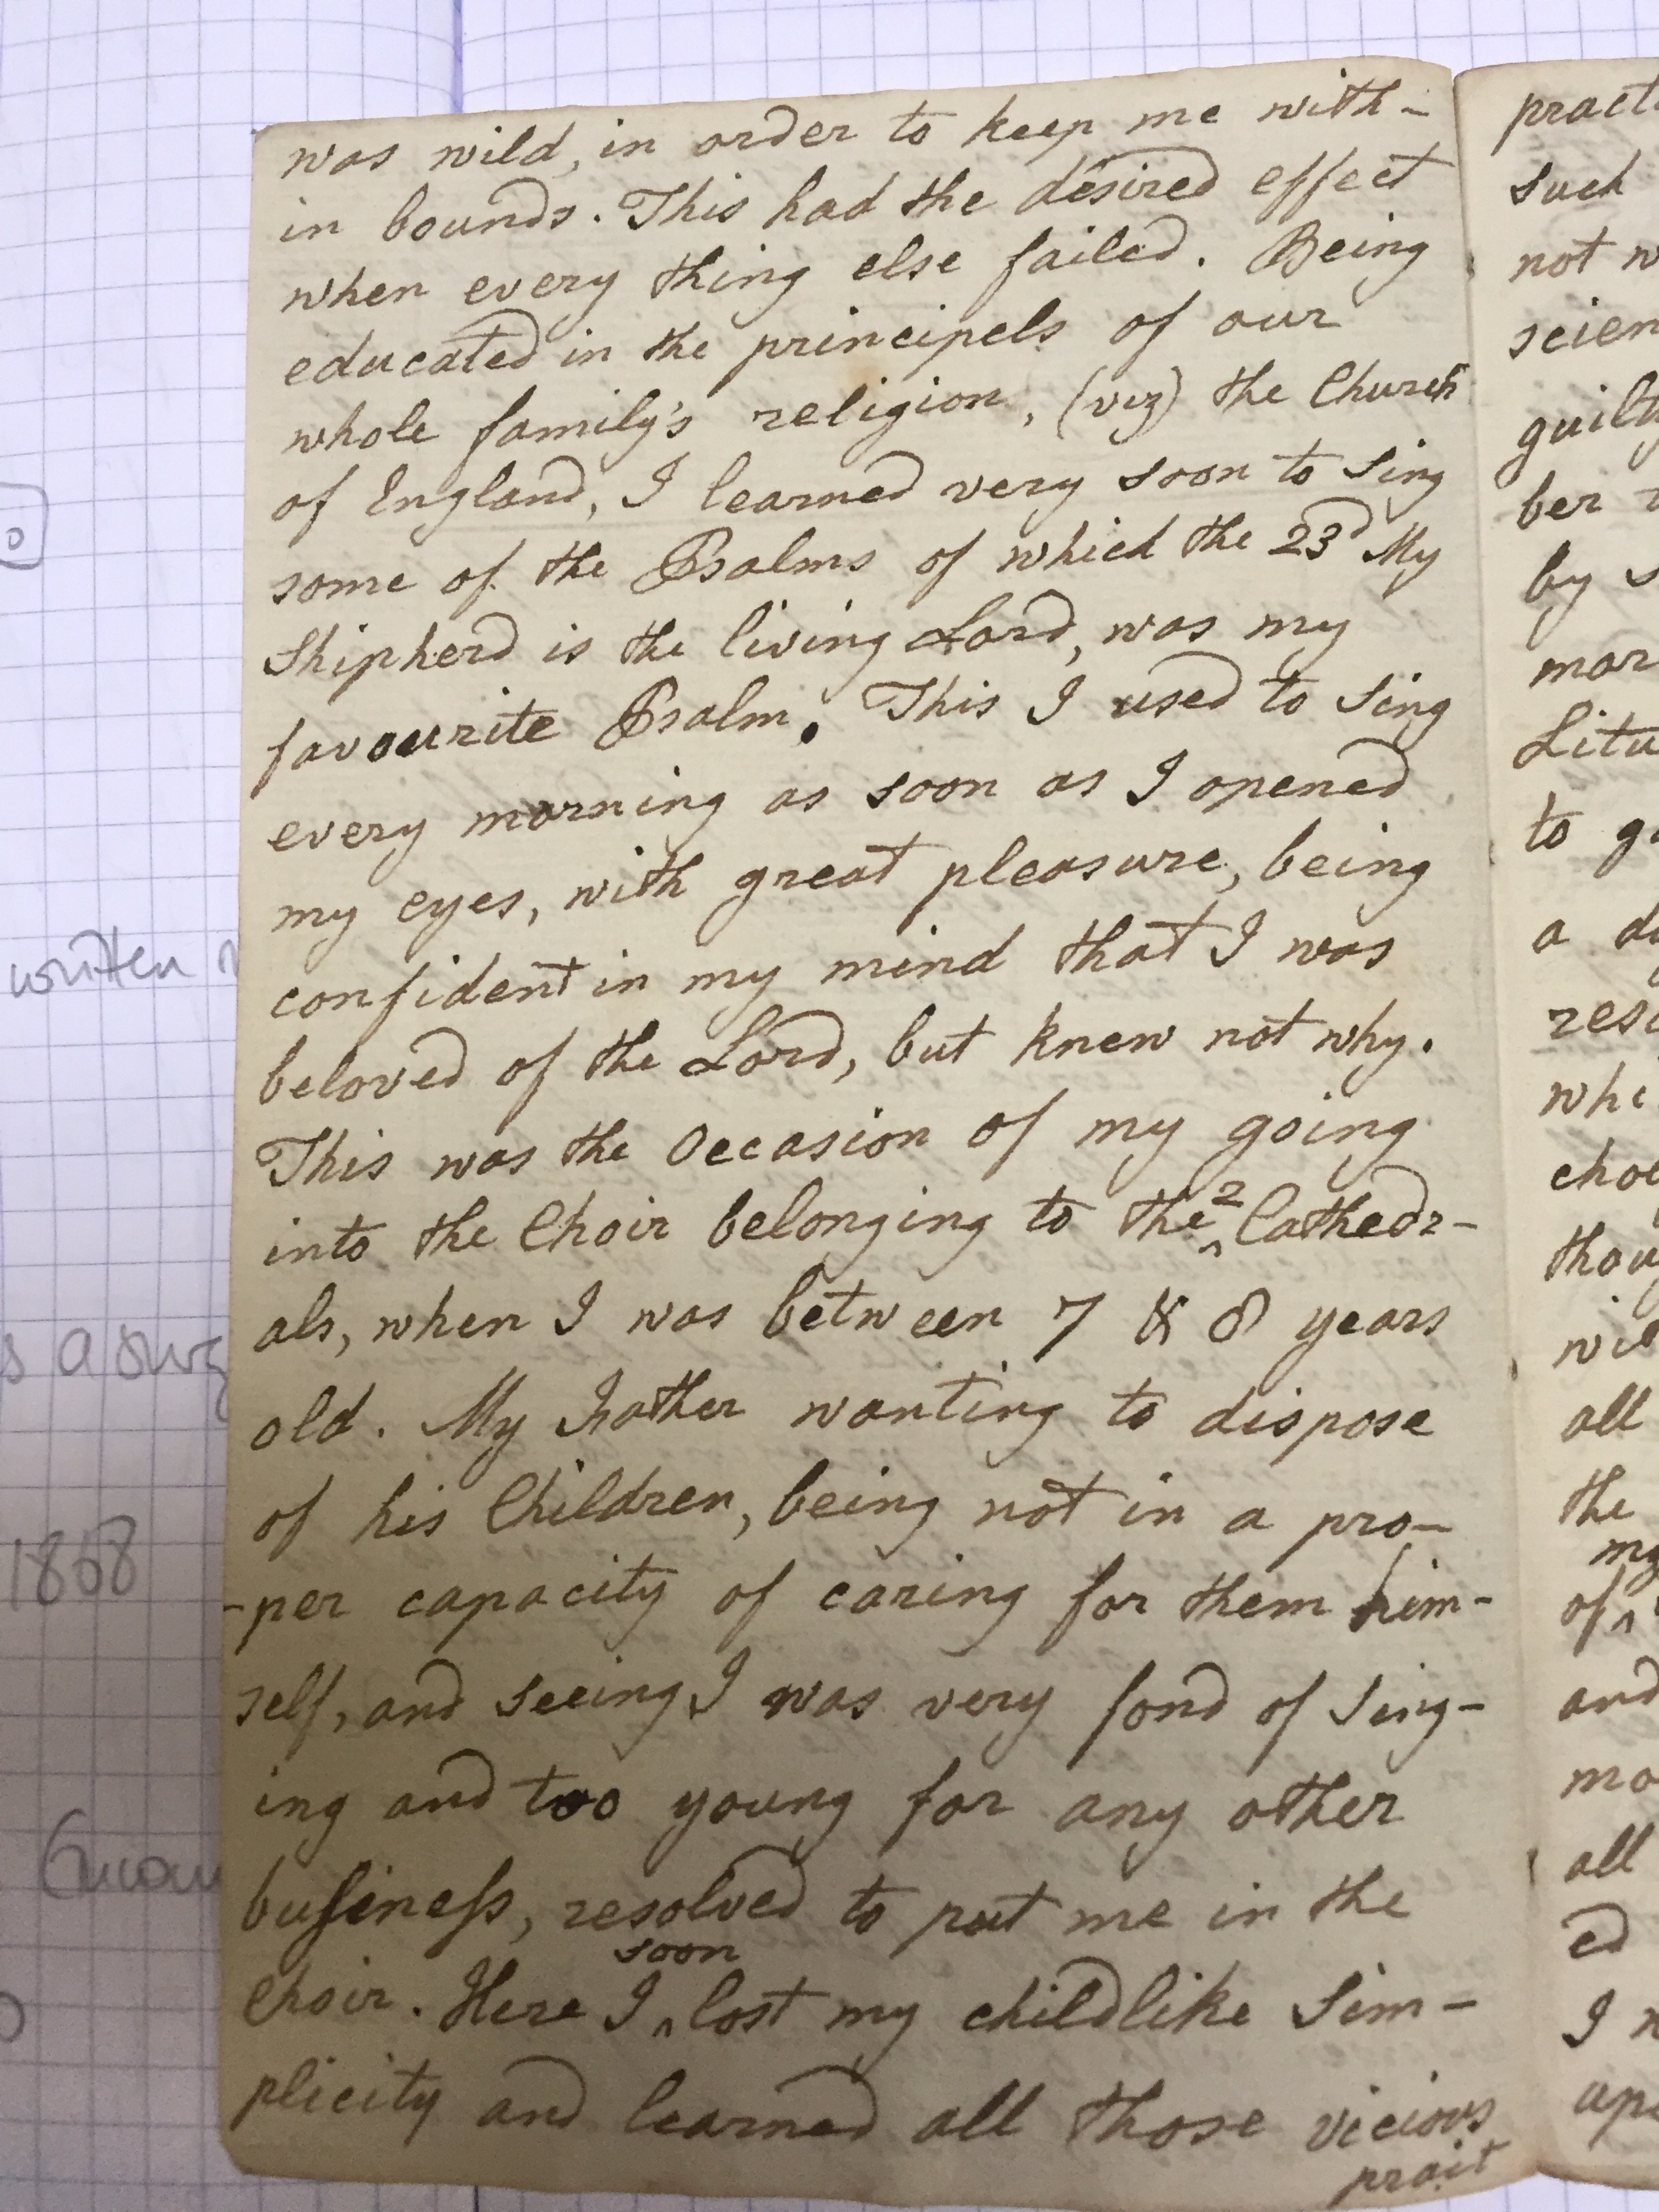 was wild, in order to keep me with-
in bounds. This had the desired effect
when every thing else failed. Being
educated in the principels of our
whole family's religion, (viz) the Church
of England, I learned very soon to sing
some of the Psalms of which the 23d My
Shipherd is the living Lord, was my
favourite Psalm. This I used to sing
every morning as soon as I opened
my eyes, with great pleasure, being
confident in my mind that I was
beloved of the Lord, but knew not why.
This was the Occasion of my going
into the Choir belonging to the ^2 Cathedr-
als, when I was between 7 & 8 years
old. My Father wanting to dispose
of his Children, being not in a pro-
-per capacity of caring for them him-
self, and seeing I was very fond of Sing-
ing and too young for any other
business, resolved to put me in the
soon
Choir. Here I ^ lost my childlike Sim-
plicity and learned all those vicious
prait
practi
such
not w
scien
guilty
ber
by s
mor
Litu
to g
a d
reso
whi
choi
thou
wi
all
the
my
of ^
and
mo
all
ed
I n
upo
written
1868